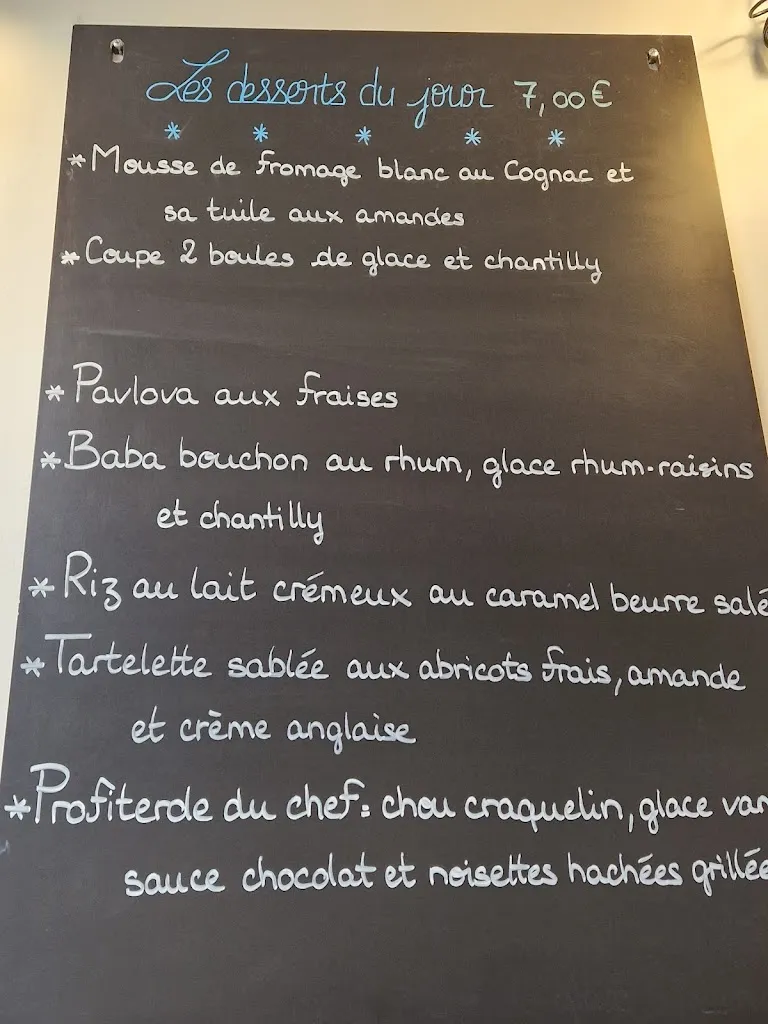 Les desserts du jour 7,00€
* * * * *
* Mousse de fromage blanc au Cognac et
sa tuile aux amandes
* Coupe 2 boules de glace et chantilly
* Pavlova aux fraises
* Baba bouchon au rhum, glace rhum-raisins
et chantilly
* Riz au lait crémeux au caramel beurre salé
* Tartelette sablée aux abricots frais, amande
et crème anglaise
* Profiterole du chef: chou craquelin, glace
sauce chocolat et noisettes hachées grillée